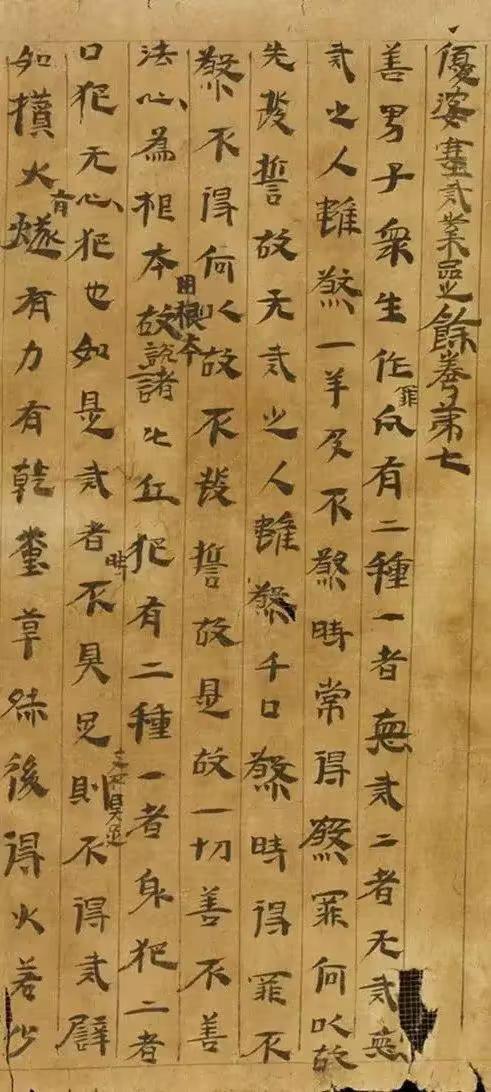 優婆塞戒業品之餘卷第七
善男子衆生作罪凡有二種一者惡戒二者无戒惡
戒之人雖煞一羊及不煞時常得煞罪何以故
先發誓故无戒之人雖煞千口煞時得罪不
煞不得何以故不發誓故是故一切善不善
法心為根本因根本故說諸比丘犯有二種一者身犯二者
口犯无心犯也如是戒者時不具足支不具足則不得戒譬
如攢火有燧有力有乾草然後得火若少